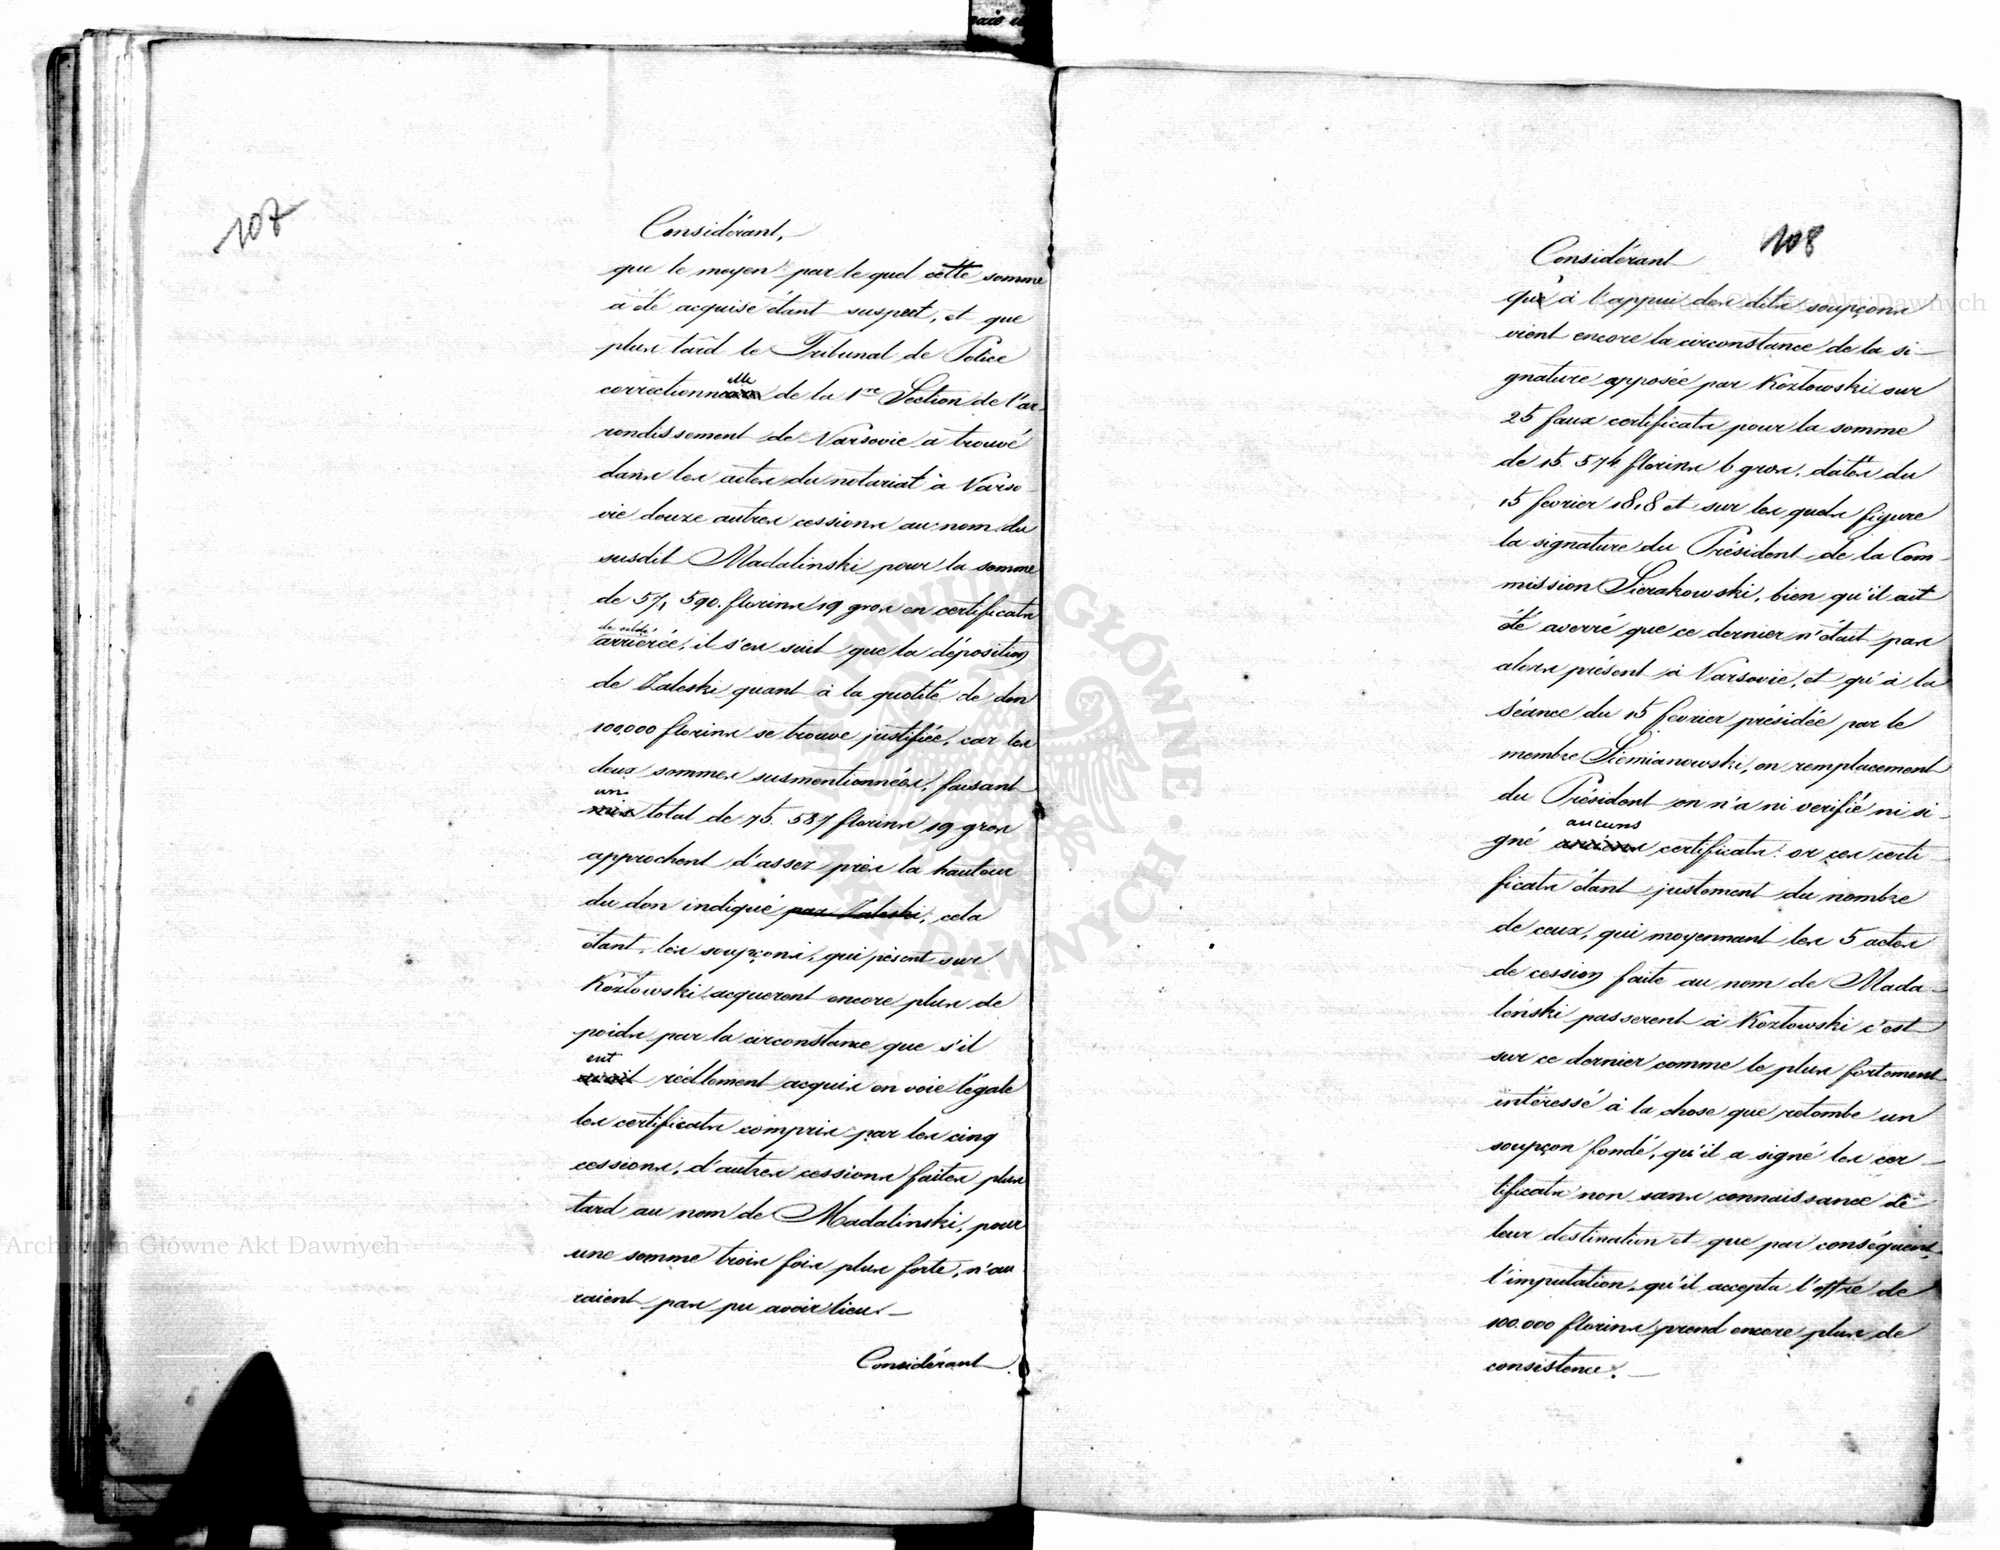 107
Considérant,
que le moyen par le quel cette somme
a été acquise étant suspect, et que
plus tard le Tribunal de Police
correctionnelle de la 1re Section de l'ar-
rondissement de Varsovie a trouvé
dans les actes du notariat à Varso-
vie douze autres cessions au nom du
susdit Madalinski pour la somme
de 57,590. florins 19 gros en certificats
de solde
arriérée, il s'en suit que la déposition
de Zaleski quant à la quotité de don
100,000 florins se trouve justifiée, car les
deux sommes susmentionnées, faisant
un total de 75.587 florins 19 gros
approchent d'assez près la hauteur
du don indiqué par Zaleski; cela
étant, les soupçons, qui pèsent sur
Kozlowski acquerent encore plus de
poids par la circonstance que s'il
eut réellement acquis en voie légale
les certificats compris par les cinq
cessions, d'autres cessions faites plus
tard au nom de Madalinski, pour
une somme trois fois plus forte, n'au
raient pas pu avoir lieu. —
Considérant
108
Considérant
qu'à l'appui des dits soupçons
vient encore la circonstance de la si-
gnature apposée par Kozlowski sur
25 faux certificats pour la somme
de 15.574 florins 6 gros, datés du
15 fevrier 1818 et sur les quels figure
la signature du Président de la Com-
mission Sierakowski, bien qu'il ait
été averré que ce dernier n'était pas
alors présent à Varsovie, et qu'à la
séance du 15 fevrier présidée par le
membre Siemianowski, en remplacement
du Président on n'a ni verifié ni si-
gné aucuns certificats: or ces certi-
ficats étant justement du nombre
de ceux, qui moyennant les 5 actes
de cession faite au nom de Mada-
lénski passerent à Kozlowski c'est
sur ce dernier comme le plus fortement
intéressé à la chose que retombe un
soupçon fondé, qu'il a signé les cer-
tificats non sans connaissance de
leur destination et que par conséquent,
l'imputation, qu'il accepta l'offre de
100.000 florins prend encore plus de
consistence. —
Archiwum Główne Akt Dawnych
Archiwum Główne Akt Dawnych
ARCHIWUM GŁÓWNE AKT DAWNYCH